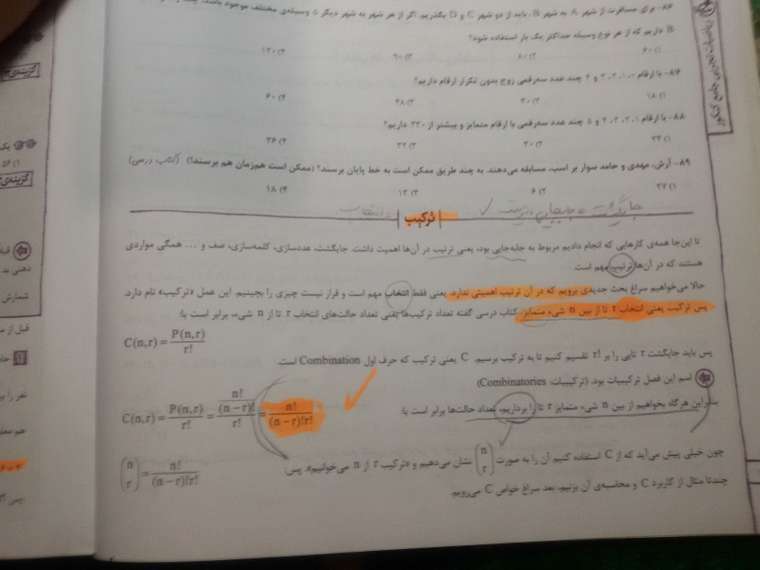 ۸۶- برای مسافرت از شهر A به شهر B، باید از دو شهر C و D بگذریم. اگر از هر شهر به شهر دیگر ۵ وسیله‌ی مختلف موجود باشد،
B داریم که از هر نوع وسیله حداکثر یک بار استفاده شود؟
۱) ۶۰ ۲) ۸۰ ۳) ۹۰ ۴) ۱۲۰
۸۷- با ارقام ۰، ۱، ۲، ۳ و ۴ چند عدد سه‌رقمی زوج بدون تکرار ارقام داریم؟
۱) ۱۸ ۲) ۳۰ ۳) ۴۸ ۴) ۶۰
۸۸- با ارقام ۱، ۲، ۳، ۴ و ۵ چند عدد سه‌رقمی با ارقام متمایز و بیشتر از ۲۳۰ داریم؟
۲) ۳۰ ۳) ۳۲ ۴) ۳۶
۸۹- آرش، مهدی و حامد سوار بر اسب، مسابقه می‌دهند. به چند طریق ممکن است به خط پایان برسند؟ (ممکن است هم‌زمان هم برسند!)
۱) ۲۷ ۲) ۶ ۳) ۱۳ ۴) ۱۸
ترکیب
تا این‌جا همه‌ی کارهایی که انجام دادیم مربوط به جابه‌جایی بود، یعنی ترتیب در آن‌ها اهمیت داشت. جایگشت، عددسازی، کلمه‌سازی، صف و ... همگی مواردی
هستند که در آن‌ها ترتیب مهم است.
حالا می‌خواهیم سراغ بحث جدیدی برویم که در آن ترتیب اهمیتی ندارد. یعنی فقط انتخاب مهم است و قرار نیست چیزی را بچینیم. این عمل «ترکیب» نام دارد.
پس ترکیب یعنی انتخاب r تا از بین n شیء متمایز. کتاب درسی گفته تعداد ترکیب‌ها یعنی تعداد حالت‌های انتخاب r تا از n شیء، برابر است با:
C(n,r) = P(n,r) / r!
پس باید جایگشت r تایی را بر r! تقسیم کنیم تا به ترکیب برسیم. C یعنی ترکیب که حرف اول Combination است.
اسم این فصل ترکیبیات بود. (ترکیبیات: Combinatories)
بنابراین هرگاه بخواهیم از بین n شیء متمایز r تا را برداریم، تعداد حالت‌ها برابر است با:
C(n,r) = P(n,r) / r! = (n! / (n-r)!) / r! = n! / (n-r)!r!
چون خیلی پیش می‌آید که از C استفاده کنیم آن را به صورت (n r) نشان می‌دهیم و «ترکیب r از n می‌خوانیم». پس:
(n r) = n! / (n-r)!r!
چندتا مثال از کاربرد C و محاسبه‌ی آن بزنیم، بعد سراغ خواص C می‌رویم.